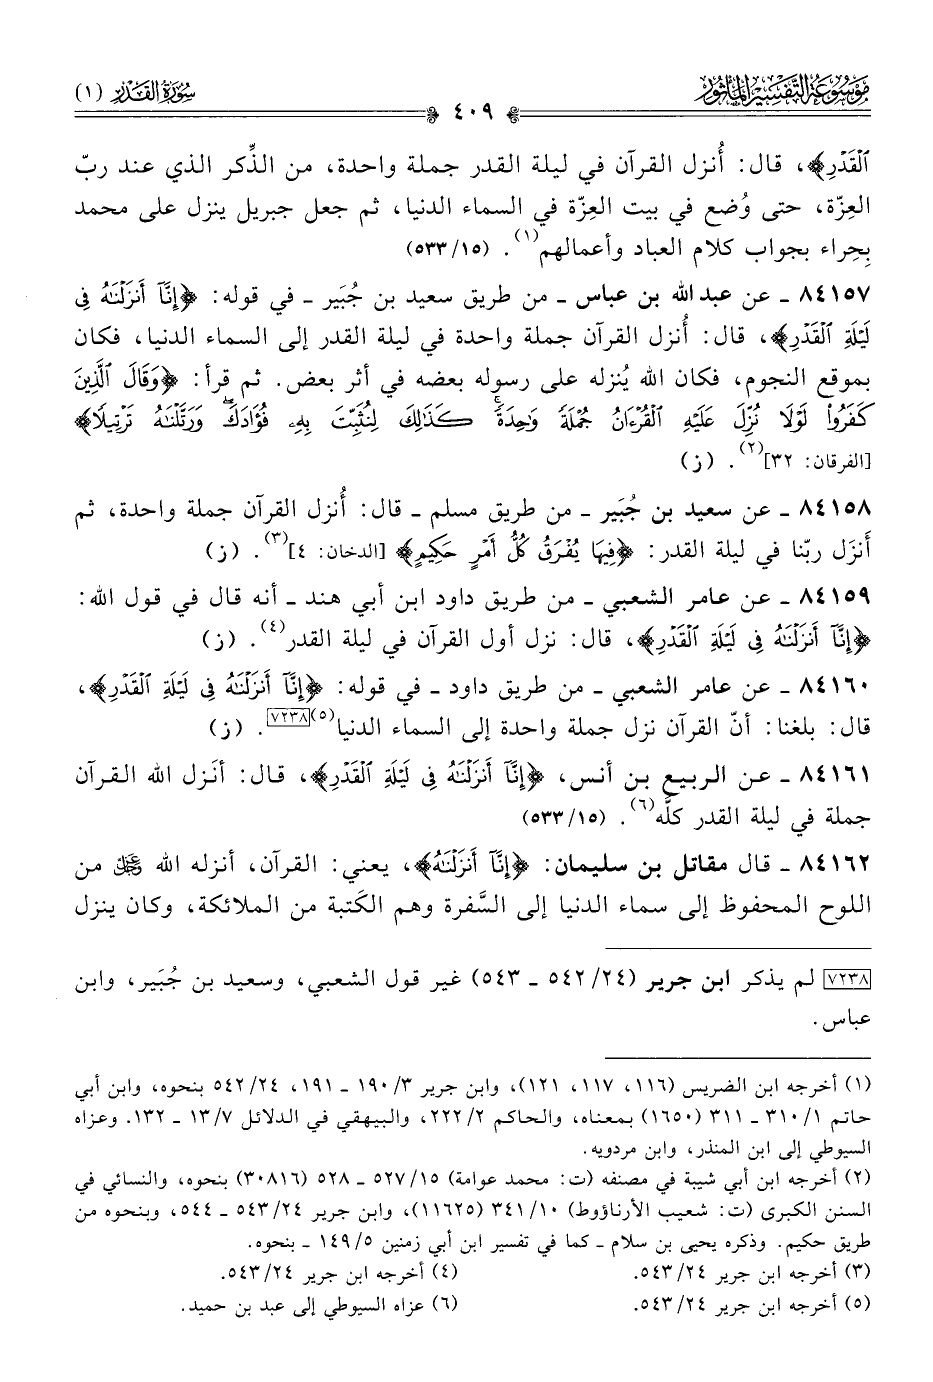 مَوْسُوعَة التَّفْسِيرِ المَأْثُور
٤٠٩
سُورَةُ القَدْرِ (١)
ٱلْقَدْرِ﴾، قال: أُنزل القرآن في ليلة القدر جملة واحدة، من الذِّكر الذي عند ربّ
العِزّة، حتى وُضع في بيت العِزّة في السماء الدنيا، ثم جعل جبريل ينزل على محمد
بِحِراء بجواب كلام العباد وأعمالهم(١). (١٥/٥٣٣)
٨٤١٥٧ ـ عن عبد الله بن عباس ـ من طريق سعيد بن جُبَير ـ في قوله: ﴿إِنَّآ أَنزَلْنَٰهُ فِى
لَيْلَةِ ٱلْقَدْرِ﴾، قال: أُنزل القرآن جملة واحدة في ليلة القدر إلى السماء الدنيا، فكان
بموقع النجوم، فكان الله يُنزله على رسوله بعضه في أثر بعض. ثم قرأ: ﴿وَقَالَ ٱلَّذِينَ
كَفَرُوا۟ لَوْلَا نُزِّلَ عَلَيْهِ ٱلْقُرْءَانُ جُمْلَةً وَٰحِدَةً ۚ كَذَٰلِكَ لِنُثَبِّتَ بِهِۦ فُؤَادَكَ ۖ وَرَتَّلْنَٰهُ تَرْتِيلًا﴾
[الفرقان: ٣٢](٢). (ز)
٨٤١٥٨ ـ عن سعيد بن جُبَير ـ من طريق مسلم ـ قال: أُنزل القرآن جملة واحدة، ثم
أَنزَل ربّنا في ليلة القدر: ﴿فِيهَا يُفْرَقُ كُلُّ أَمْرٍ حَكِيمٍ﴾ [الدخان: ٤](٣). (ز)
٨٤١٥٩ ـ عن عامر الشعبي ـ من طريق داود ابن أبي هند ـ أنه قال في قول الله:
﴿إِنَّآ أَنزَلْنَٰهُ فِى لَيْلَةِ ٱلْقَدْرِ﴾، قال: نزل أول القرآن في ليلة القدر(٤). (ز)
٨٤١٦٠ ـ عن عامر الشعبي ـ من طريق داود ـ في قوله: ﴿إِنَّآ أَنزَلْنَٰهُ فِى لَيْلَةِ ٱلْقَدْرِ﴾،
قال: بلغنا: أنّ القرآن نزل جملة واحدة إلى السماء الدنيا(٥)[٧٢٣٨]. (ز)
٨٤١٦١ ـ عن الربيع بن أنس، ﴿إِنَّآ أَنزَلْنَٰهُ فِى لَيْلَةِ ٱلْقَدْرِ﴾، قال: أنَزل الله القرآن
جملة في ليلة القدر كلَّه(٦). (١٥/٥٣٣)
٨٤١٦٢ ـ قال مقاتل بن سليمان: ﴿إِنَّآ أَنزَلْنَٰهُ﴾، يعني: القرآن، أنزله الله ﷿ من
اللوح المحفوظ إلى سماء الدنيا إلى السَّفرة وهم الكَتبة من الملائكة، وكان ينزل
[٧٢٣٨] لم يذكر ابن جرير (٢٤/٥٤٢ ـ ٥٤٣) غير قول الشعبي، وسعيد بن جُبَير، وابن
عباس.
(١) أخرجه ابن الضريس (١١٦، ١١٧، ١٢١)، وابن جرير ٣/١٩٠ ـ ١٩١، ٢٤/٥٤٢ بنحوه، وابن أبي
حاتم ١/٣١٠ ـ ٣١١ (١٦٥٠) بمعناه، والحاكم ٢/٢٢٢، والبيهقي في الدلائل ٧/١٣ ـ ١٣٢. وعزاه
السيوطي إلى ابن المنذر، وابن مردويه.
(٢) أخرجه ابن أبي شيبة في مصنفه (ت: محمد عوامة) ١٥/٥٢٧ ـ ٥٢٨ (٣٠٨١٦) بنحوه، والنسائي في
السنن الكبرى (ت: شعيب الأرناؤوط) ١٠/٣٤١ (١١٦٢٥)، وابن جرير ٢٤/٥٤٣ ـ ٥٤٤، وبنحوه من
طريق حكيم. وذكره يحيى بن سلام ـ كما في تفسير ابن أبي زمنين ٥/١٤٩ ـ بنحوه.
(٣) أخرجه ابن جرير ٢٤/٥٤٣.
(٤) أخرجه ابن جرير ٢٤/٥٤٣.
(٥) أخرجه ابن جرير ٢٤/٥٤٣.
(٦) عزاه السيوطي إلى عبد بن حميد.